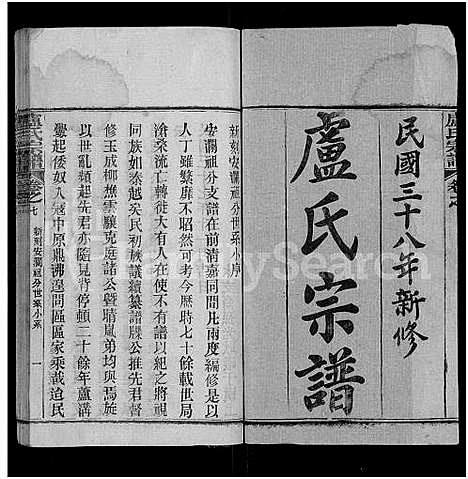 民國三十八年新修
盧氏宗譜
盧氏宗譜
卷之七
新刻安瀾祖分世系小序
安瀾祖分支譜在前清嘉同間凡兩度編修是以
人丁雖繁靡不昭然可考今歷時七十餘載世局
滄桑流亡轉徙大有人在使不有譜以紀之將視
同族如秦越矣民初族議續纂譜牒公推先君督
修玉成柳樵雲驤克庭諸公暨晴嵐弟均與焉旋
以世亂頻起先君亦隨見背停頓二十餘年蘆溝
釁起倭奴入寇中原鼎沸遑問區區家乘哉迨民
盧氏宗譜
卷之七
新刻安瀾祖分世系小系
一
FamilySearch